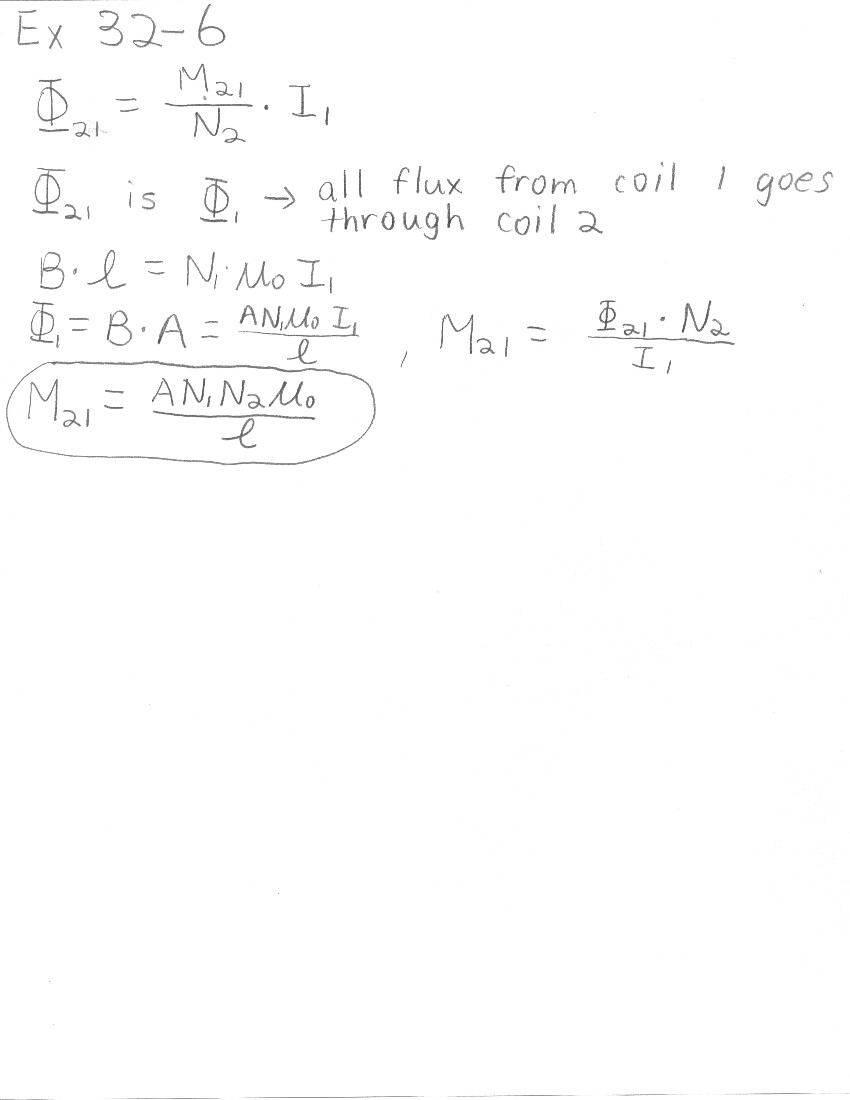 Ex 32-6
Φ₂₁ = M₂₁/N₂ · I₁
Φ₂₁ is Φ₁ → all flux from coil 1 goes
through coil 2
B·ℓ = N₁·μ₀ I₁
Φ₁ = B·A = AN₁μ₀ I₁/ℓ , M₂₁ = Φ₂₁·N₂/I₁
M₂₁ = AN₁N₂μ₀/ℓ